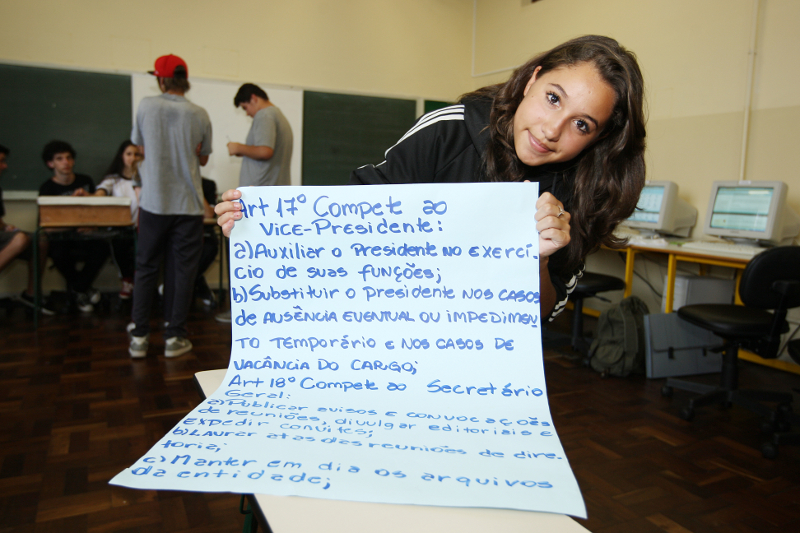 Art 17º Compete ao
Vice-Presidente:
a) Auxiliar o Presidente no exercí-
cio de suas funções;
b) Substituir o Presidente nos casos
de ausência eventual ou impedimen
to temporário e nos casos de
vacância do cargo;
Art 18º Compete ao Secretário
Geral:
a) Publicar avisos e convocações
de reuniões, divulgar editoriais e
expedir convites;
b) Lavrar atas das reuniões de dire-
toria;
c) Manter em dia os arquivos
da entidade;